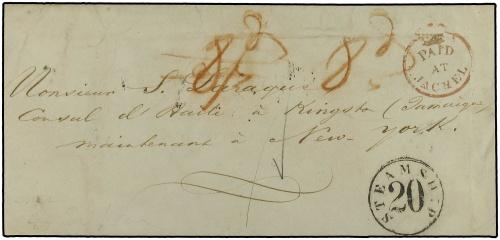 8d 8d
PAID
AT
JACMEL
Monsieur S.
Consul d'Haiti à Kingston (Jamaique)
maintenant à New-york.
STEAMSHIP
20